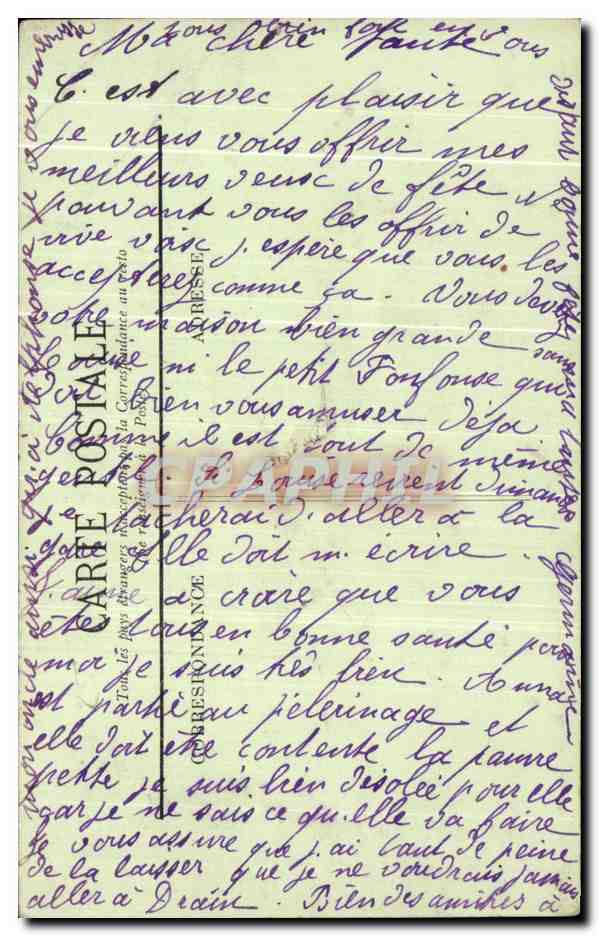 Ma chère
C'est avec plaisir que
je viens vous offrir mes
meilleurs veux de fête N
pouvant vous les offrir de
vive voix j'espère que vous les
accepterez comme ça. Vous devez
votre maison bien grande sans
ni le petit Fonfonse qui
doit bien vous amuser déjà
comme il est tout de même
gentil. Si Louise revient dimanche
je tacherai d'aller à la
gare elle doit m'écrire.
J'aime à croire que vous
êtes tous en bonne santé pour
moi je suis très bien. Anna
est partie au pèlerinage et
elle doit être contente la pauvre
petite je suis bien désolée pour elle
car je ne sais ce qu'elle va faire
je vous assure que j'ai tant de peine
de la laisser que je ne voudrais jamais
aller à Drain. Bien des amitiés à
mon oncle ainsi qu'à Alphonse je vous embrasse
tous bien fort
CARTE POSTALE
Tous les pays étrangers n'acceptent pas la Correspondance au recto
(Se renseigner à la Poste)
CORRESPONDANCE
ADRESSE
CARTAPHIL